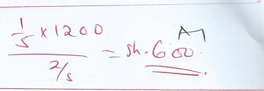 1/5 × 1200 / 2/5 = sh. 600 A1